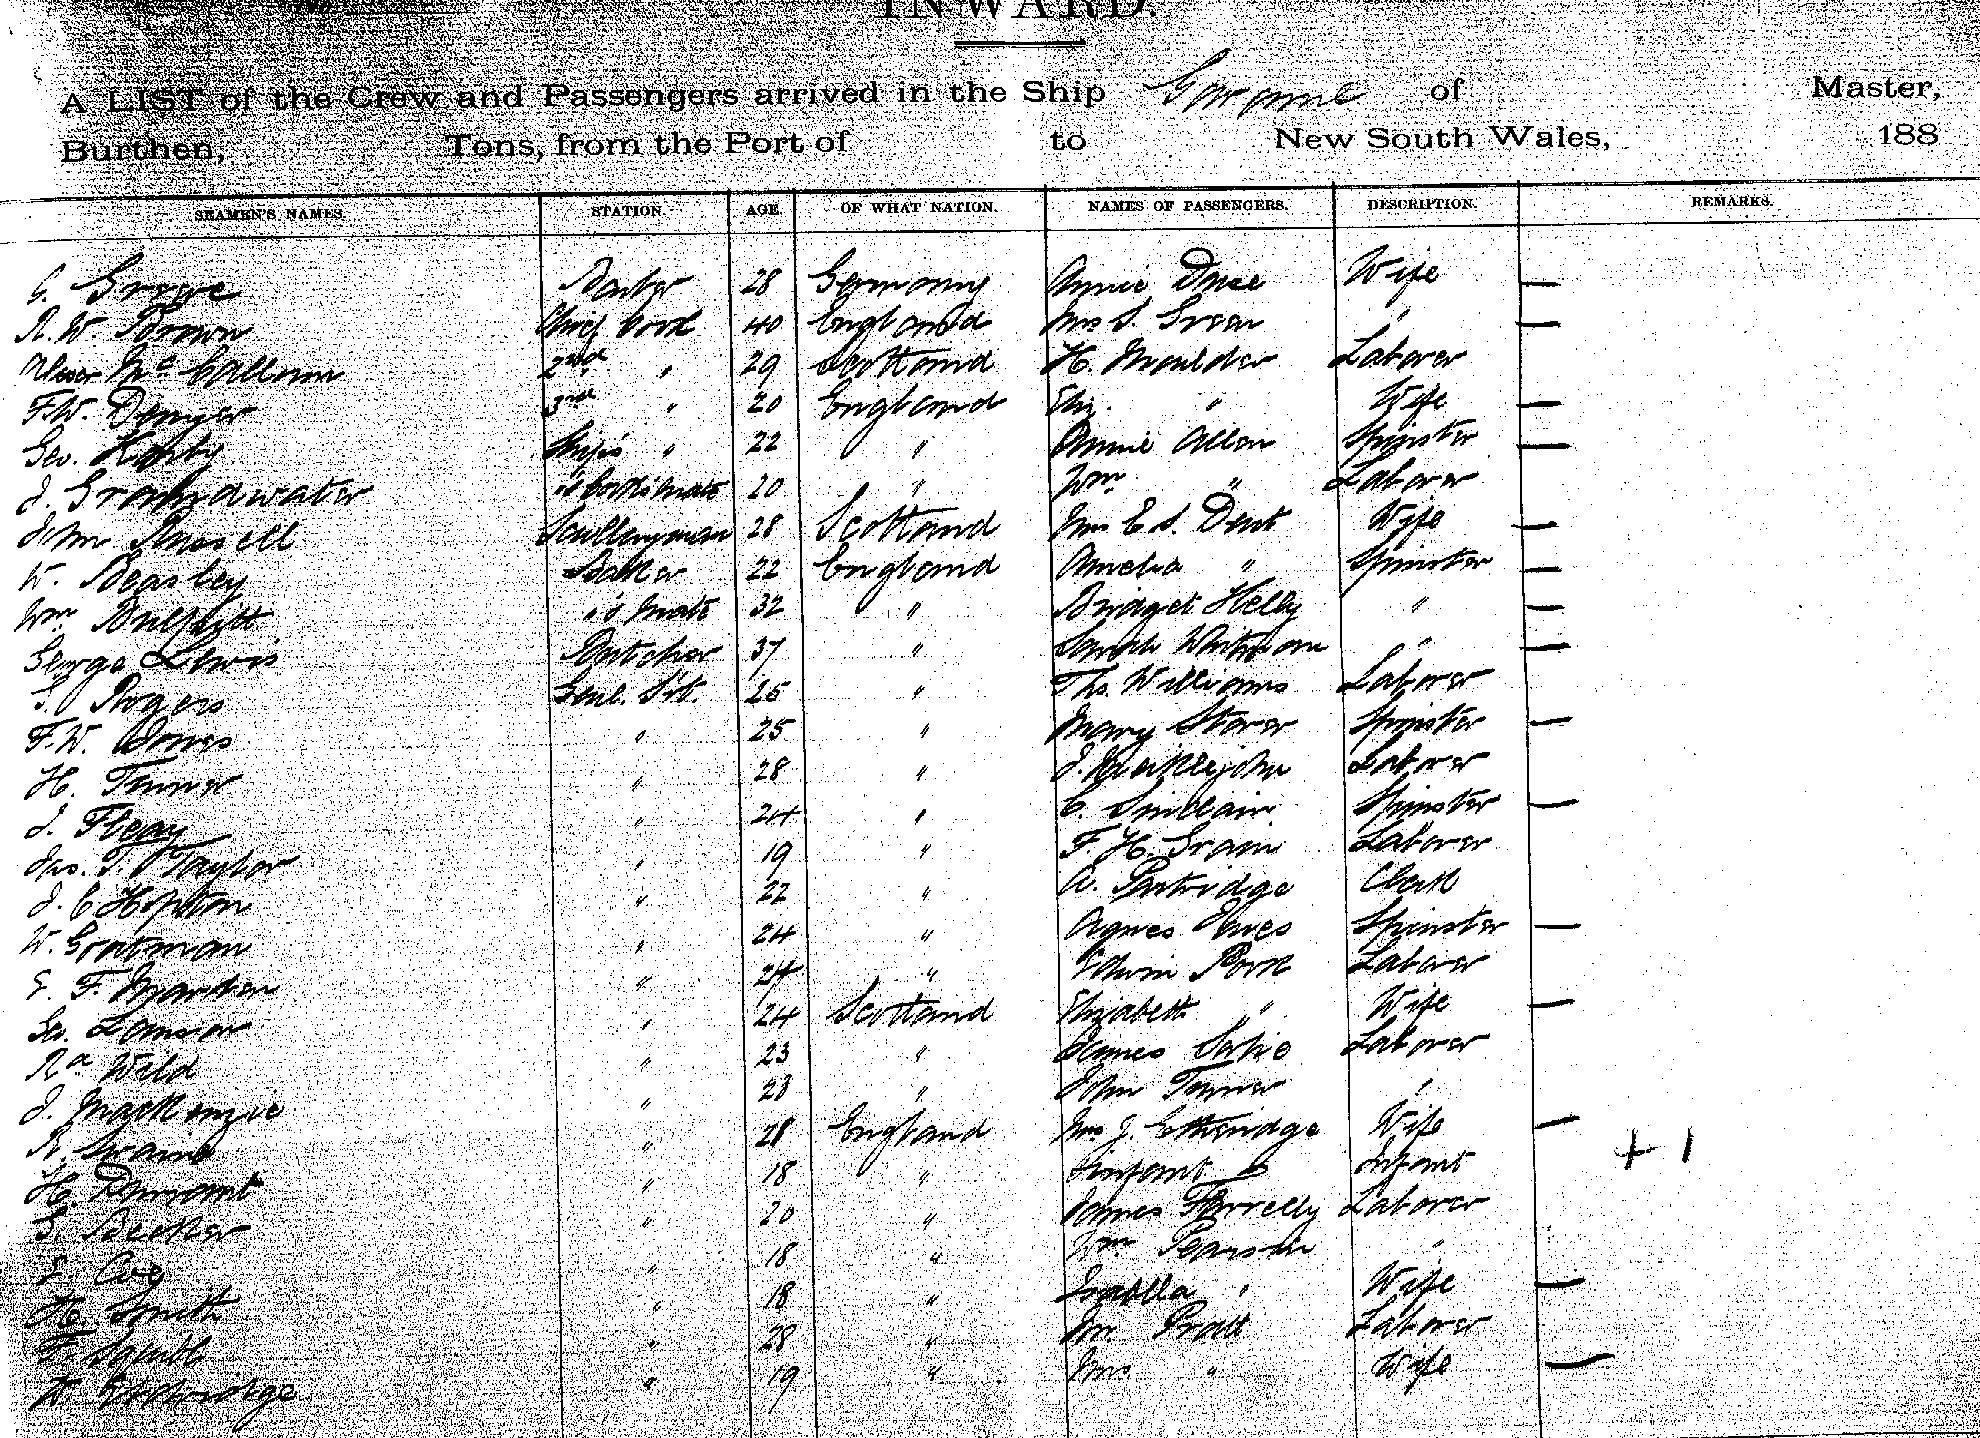 INWARD.
A LIST of the Crew and Passengers arrived in the Ship Garonne of Master,
Burthen, Tons, from the Port of to New South Wales, 188
SEAMEN'S NAMES. STATION. AGE. OF WHAT NATION. NAMES OF PASSENGERS. DESCRIPTION. REMARKS.
G. Barber 28 Germany Annie Wife —
R. W. Brown Chief Cook 40 England Mrs S. Green " —
Mc Callum 2nd " 29 Scotland H. Moulder Laborer
F. W. Denyer 3rd " 20 England Eliz. " Wife —
Geo. Ship's " 22 " Annie Allen Spinster —
J. Groundwater " 20 " Wm " Laborer
John Russell Sculleryman 28 Scotland Mrs E. S. Dent Wife —
W. Beasley Baker 22 England Amelia " Spinster —
Wm Bulpitt "s Mate 32 " Bridget Helly " —
George Lewis Butcher 37 " Sarah " —
Rogers Genl. Svt. 25 " Thos. Williams Laborer
F. W. Jones " 25 " Mary Storer Spinster —
H. Turner " 28 " J. Laborer
J. Fleay " 24 " C. Sinclair Spinster —
Jas. T. Taylor " 19 " F. H. Laborer
J. C. Hopton " 22 " A. Partridge Clerk
W. " 24 " Agnes Spinster —
E. F. " 24 " Edwin Laborer
Geo. Lawson " 24 Scotland Elizabeth " Wife —
Rd Wild " 23 " James Laborer
J. MacKenzie " 28 " John Turner "
R. " 28 England Mrs J. Etheridge Wife —
H. " 18 " Infant Infant + 1
G. Becker " 20 " James Farrelly Laborer
Coe " 18 " Wm Pearson "
H. Smith " 18 " Isabella " Wife —
F. Squibb " 28 " Wm Pratt Laborer
" 19 " Mrs " Wife —